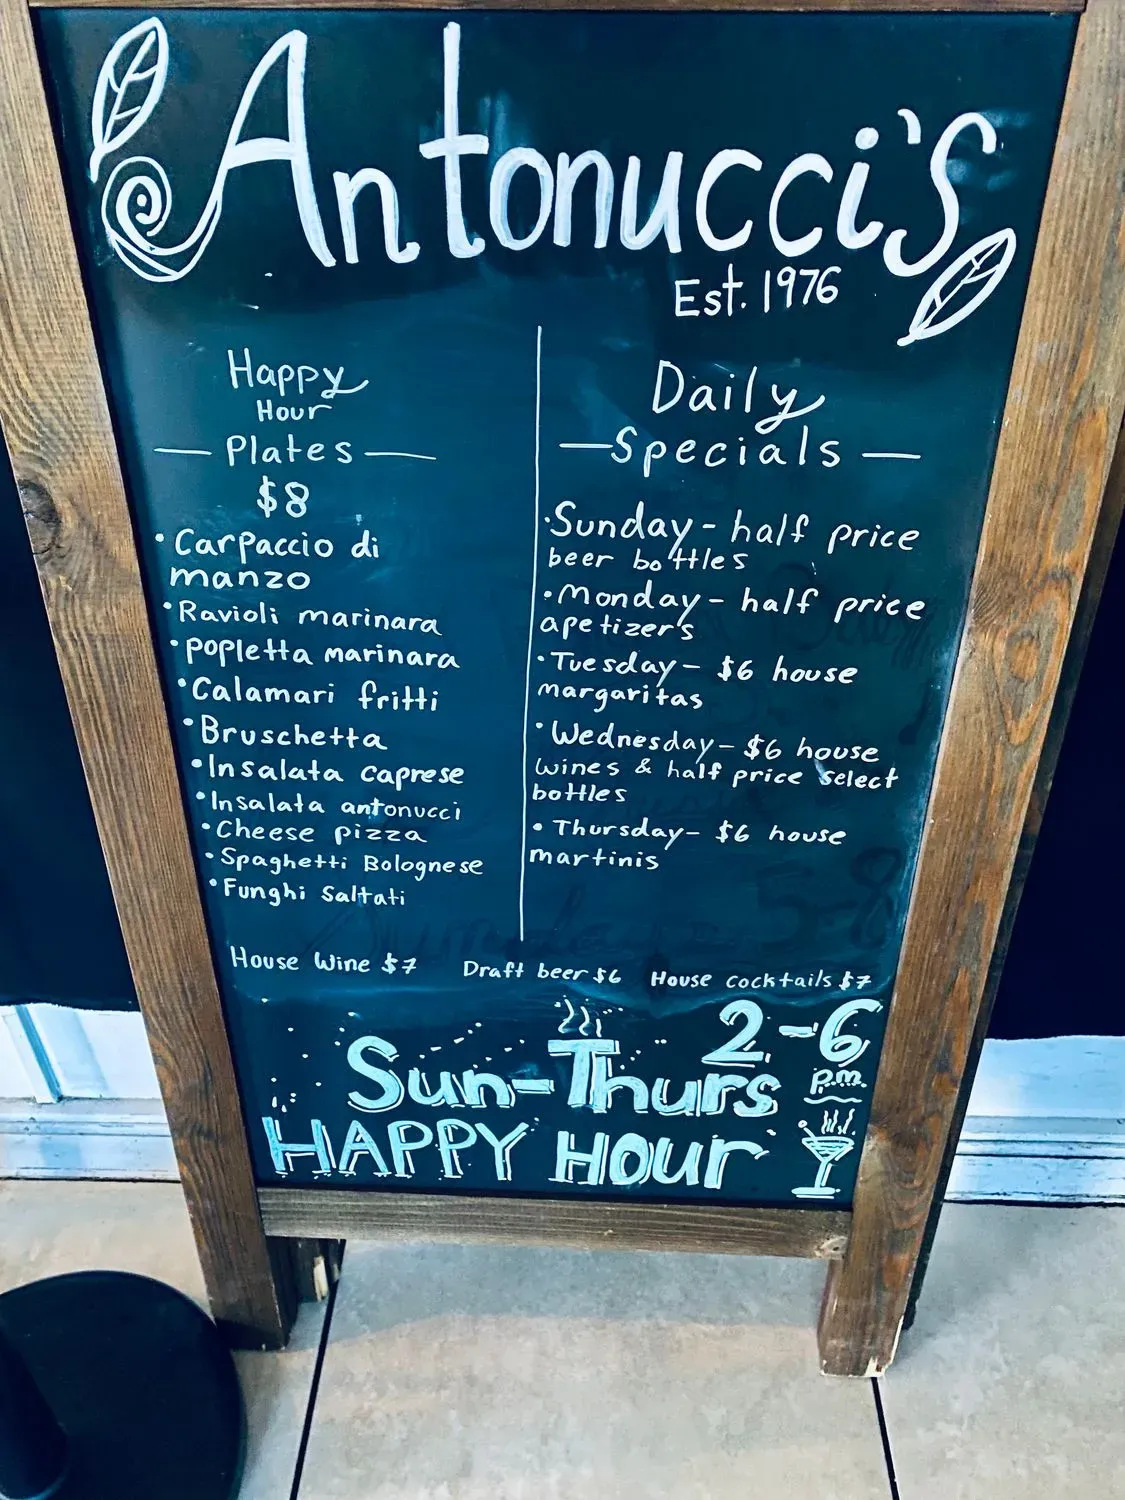 Antonucci's
Est. 1976
Happy
Hour
— Plates —
$8
• Carpaccio di
manzo
• Ravioli marinara
• Popletta marinara
• Calamari fritti
• Bruschetta
• Insalata caprese
• Insalata antonucci
• Cheese pizza
• Spaghetti Bolognese
• Funghi Saltati
Daily
— Specials —
• Sunday - half price
beer bottles
• Monday - half price
apetizers
• Tuesday - $6 house
margaritas
• Wednesday - $6 house
wines & half price select
bottles
• Thursday - $6 house
martinis
House Wine $7 Draft beer $6 House cocktails $7
2-6
Sun-Thurs p.m.
HAPPY Hour